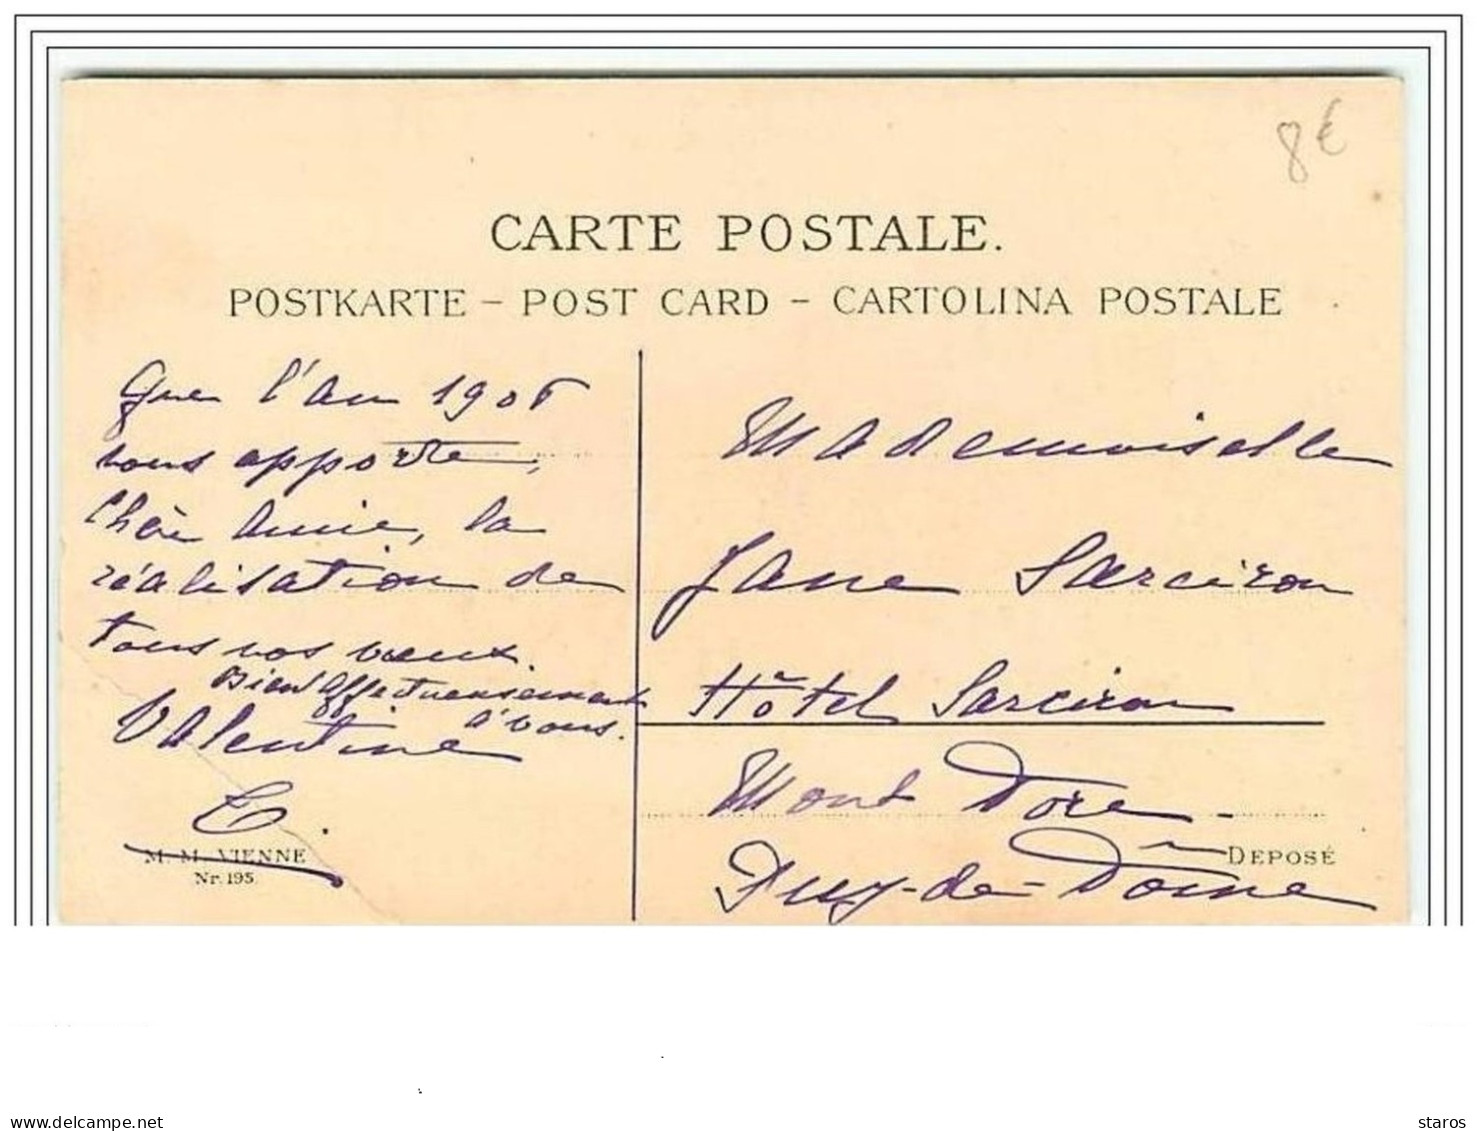 8€
CARTE POSTALE.
POSTKARTE – POST CARD – CARTOLINA POSTALE
Que l'an 1906
vous apporte,
Chère Amie, la
réalisation de
tous vos vœux.
Bien affectueusement
à vous.
Valentine
C.
M. M. VIENNE
Nr. 195.
Mademoiselle
Jane Sarciron
Hôtel Sarciron
Mont Dore
Puy-de-Dôme
DEPOSÉ
delcampe.net
staros